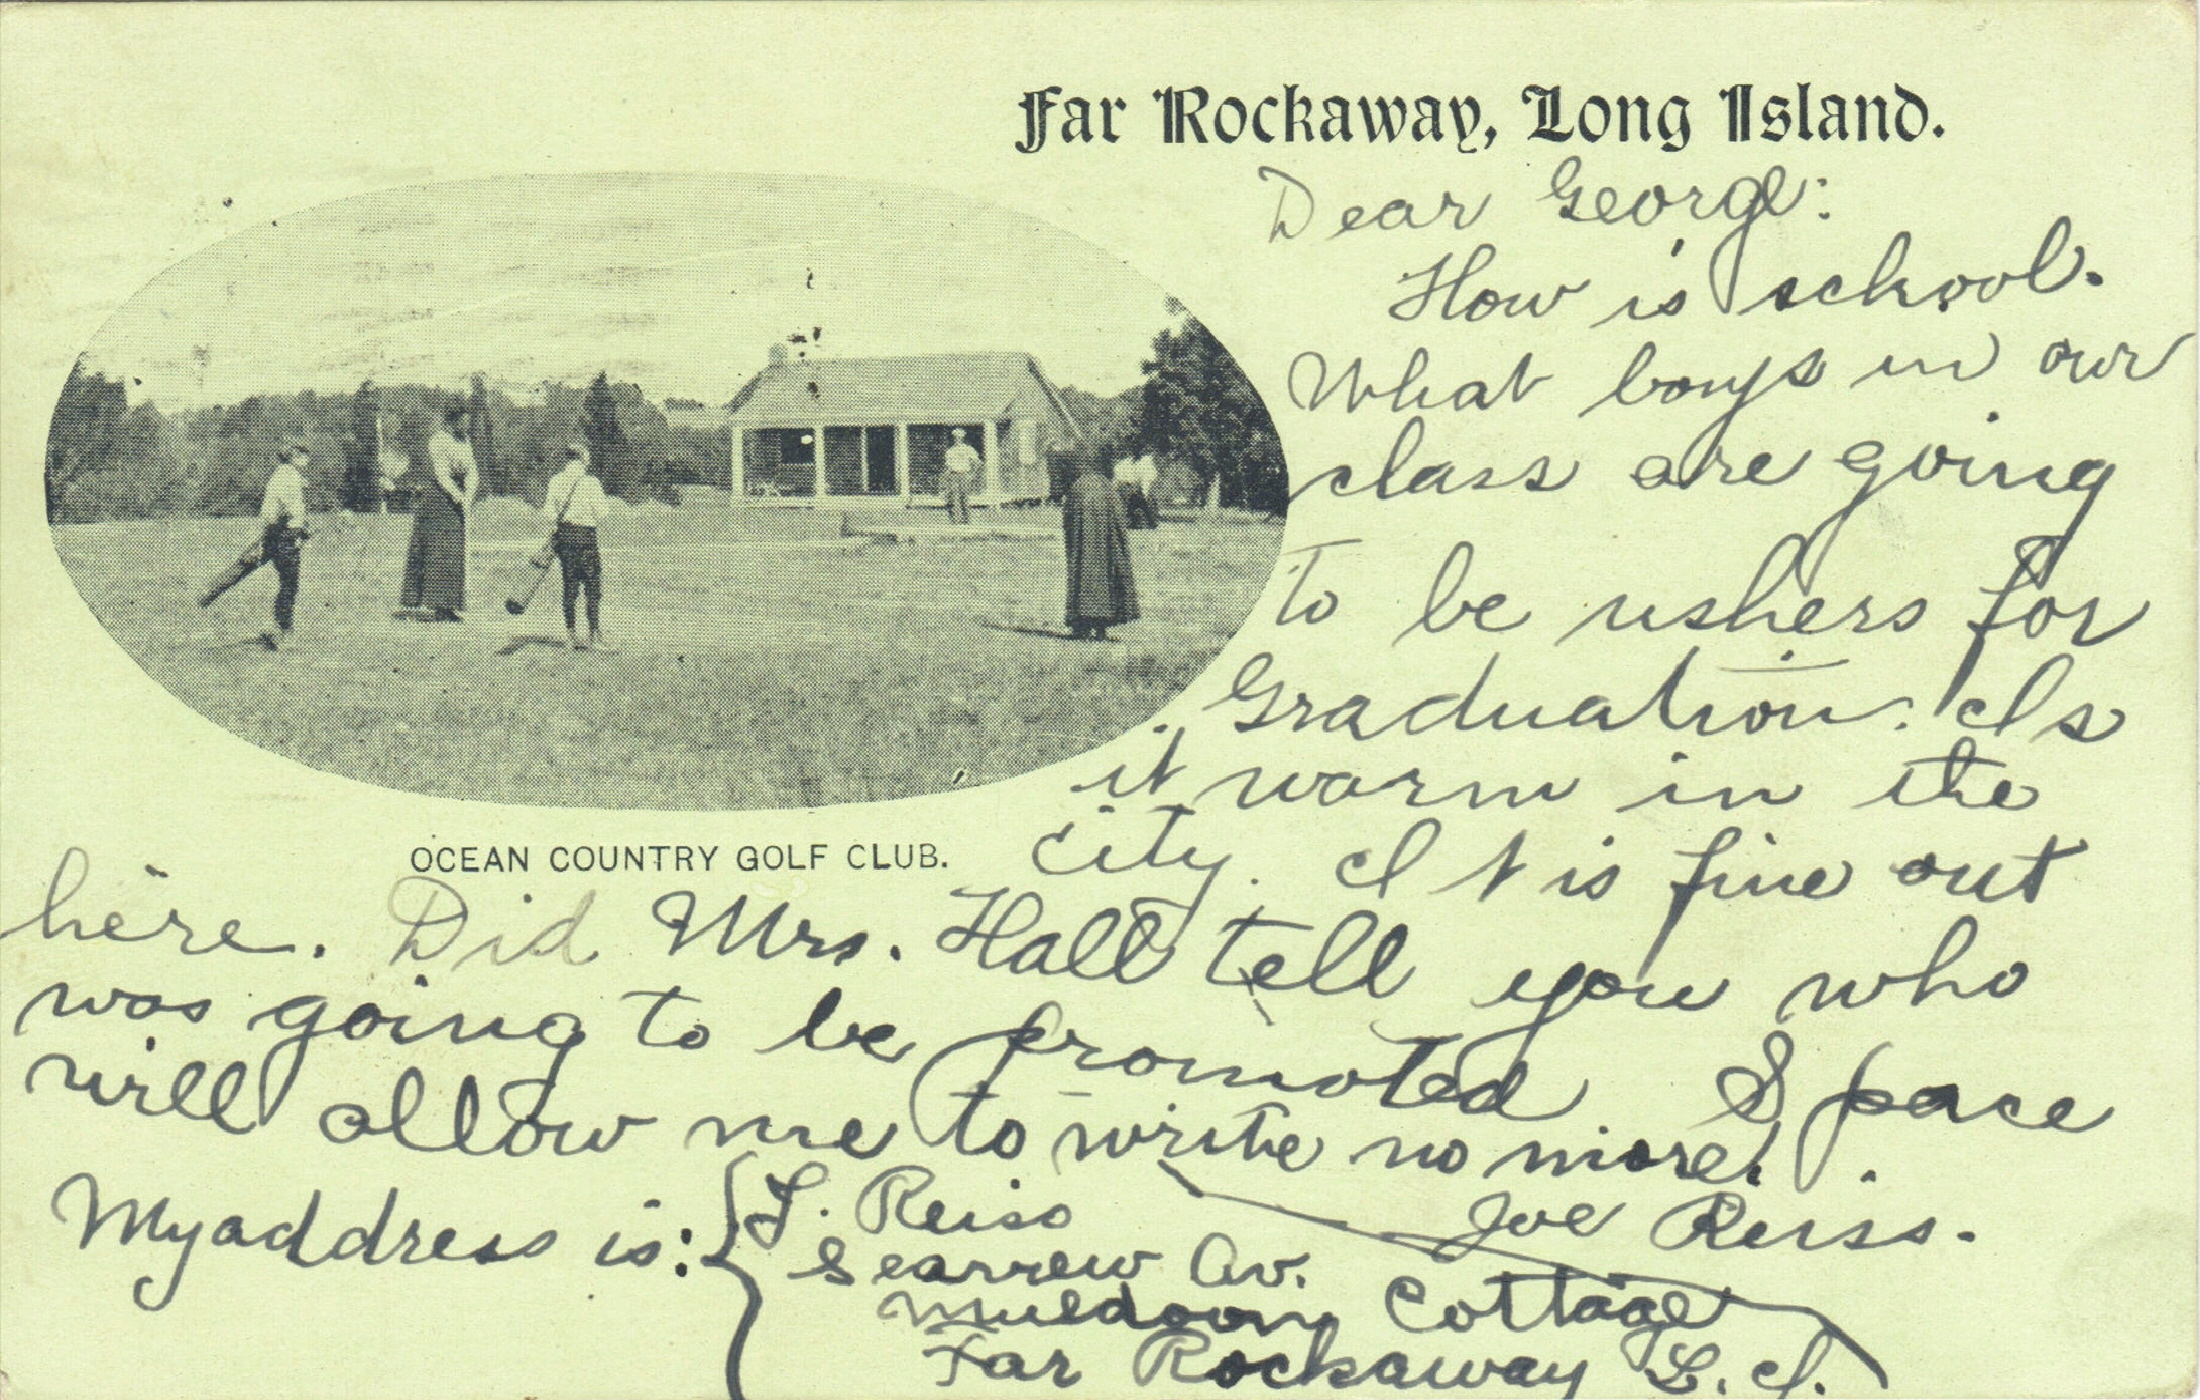 Far Rockaway, Long Island.
Dear George:
How is school.
What boys in our
class are going
to be ushers for
Graduation. Is
it warm in the
OCEAN COUNTRY GOLF CLUB.
City. It is fine out
here. Did Mrs. Hall tell you who
was going to be promoted Space
will allow me to write no more.
Joe Reiss.
My address is: J. Reiss
Av.
Muldoon Cottage
Far Rockaway L. I.